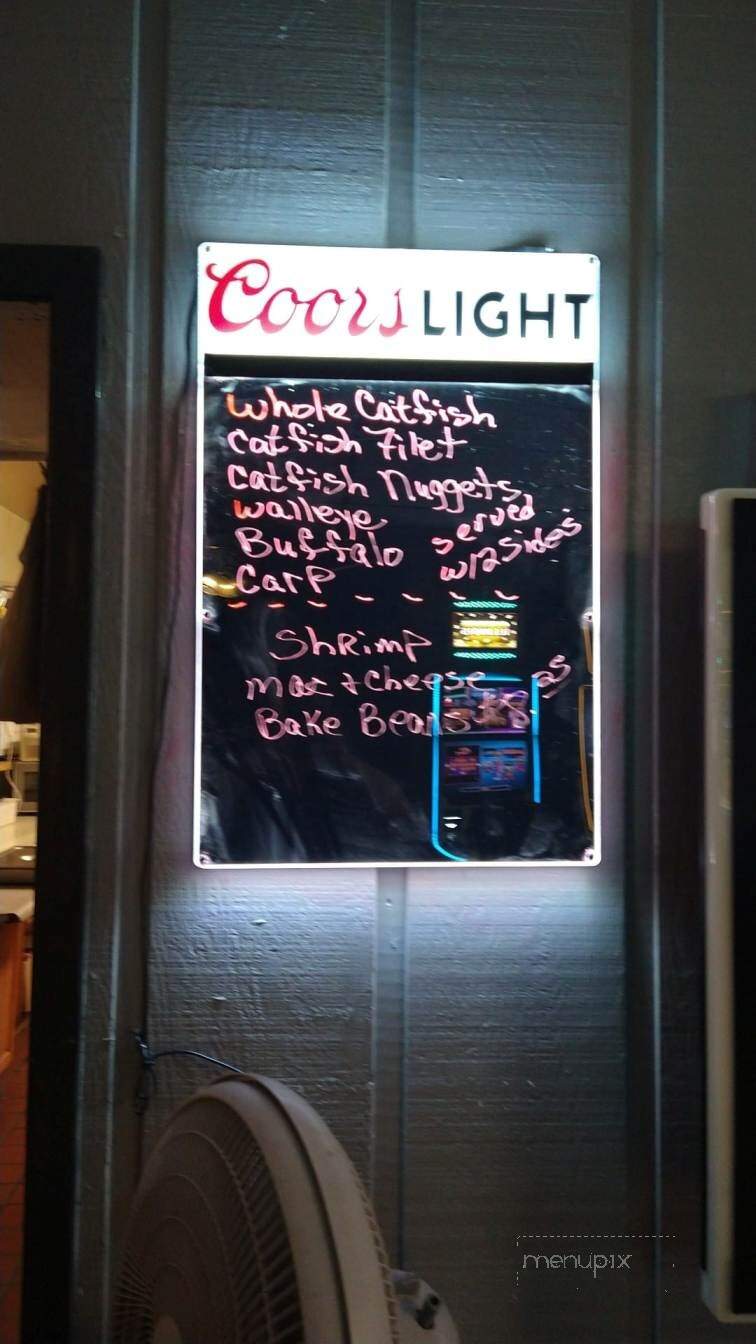 Coors LIGHT
Whole Catfish
Catfish Filet
Catfish Nuggets
Walleye
Buffalo
served
w/2 sides
Carp
Shrimp
Mac + Cheese
Bake Beans $8.25
menupix